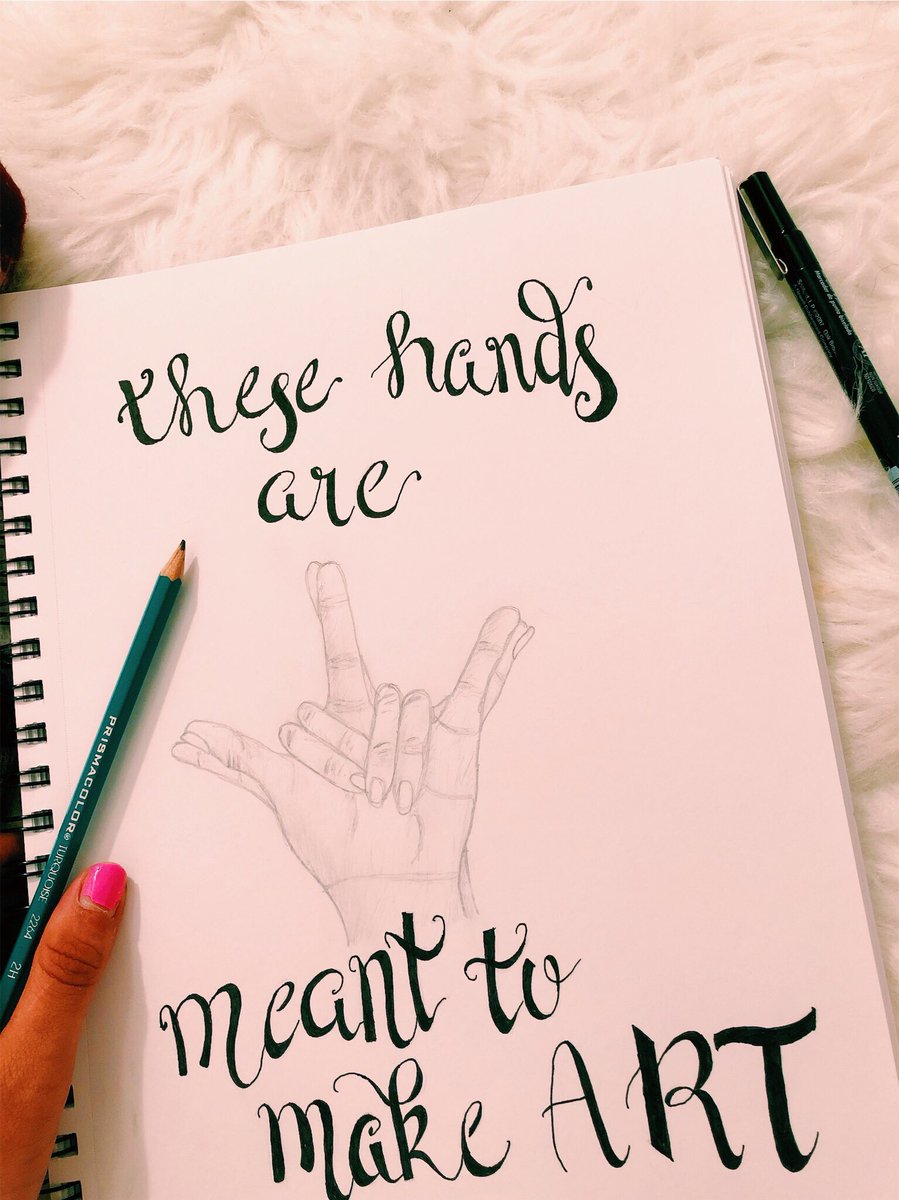 these hands
are
PRISMACOLOR® TURQUOISE 2264 2H
meant to
make ART